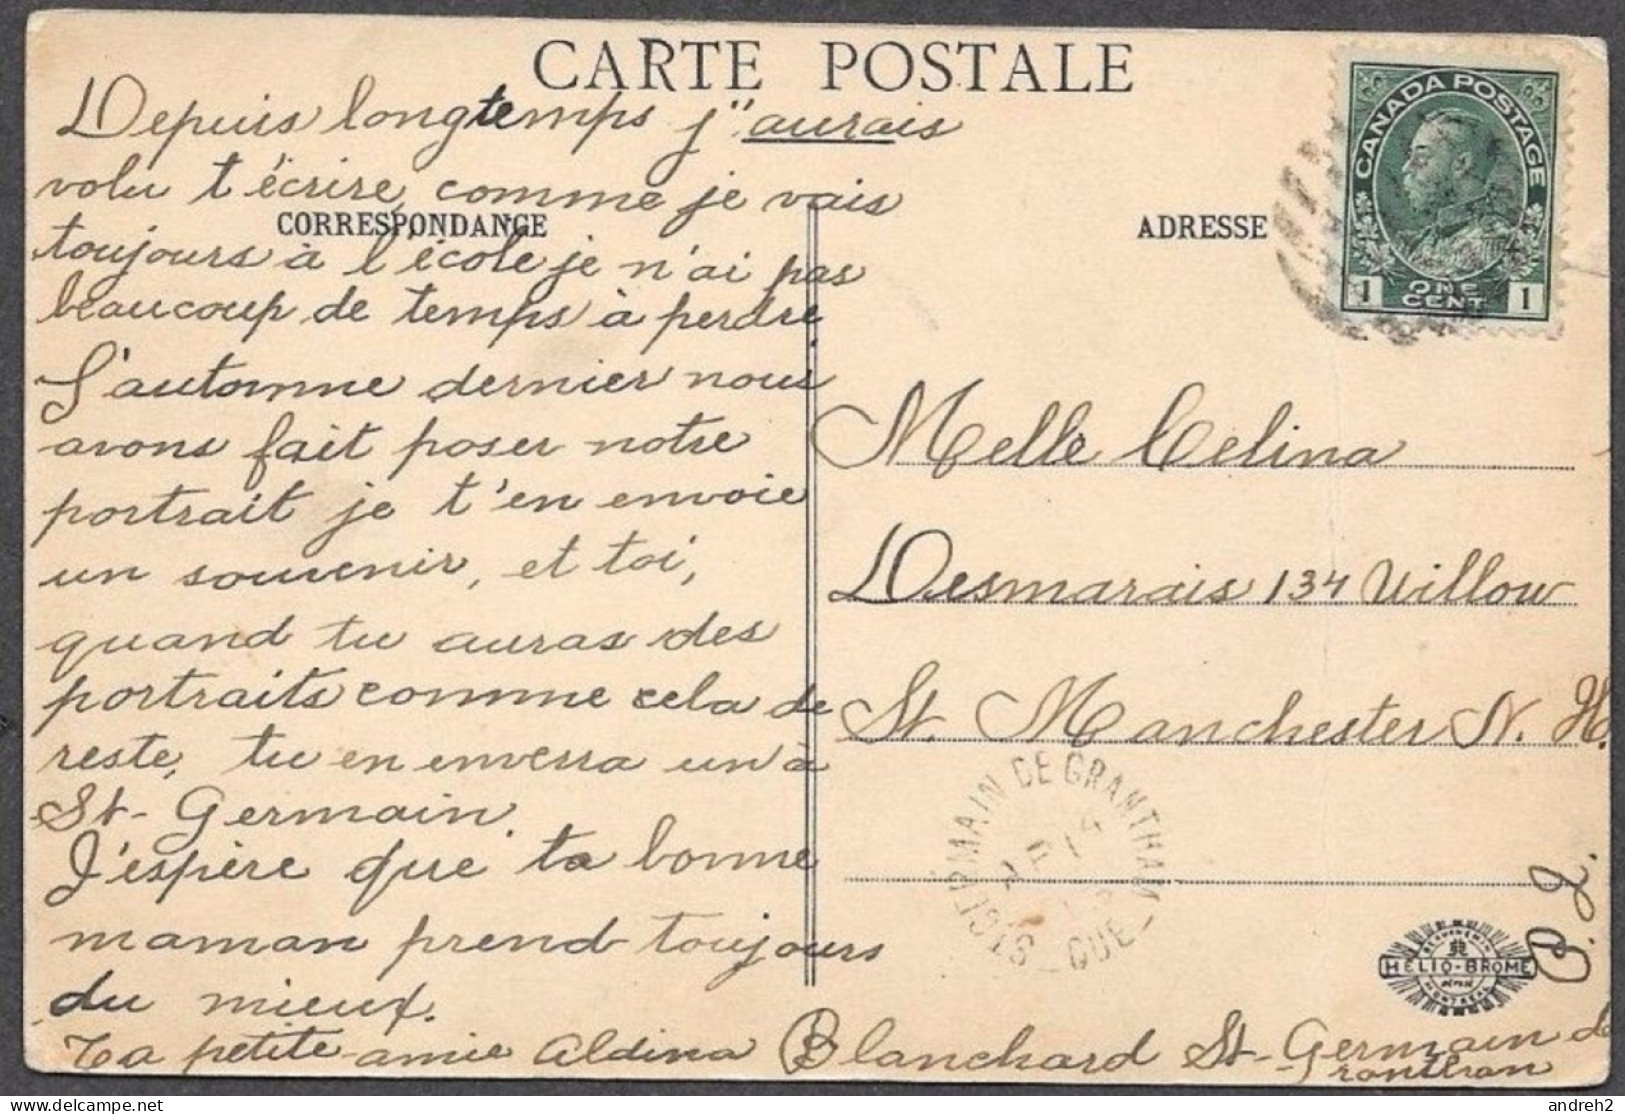 CARTE POSTALE
Depuis longtemps j"aurais
volu t'écrire comme je vais
CORRESPONDANCE
toujours à l'école je n'ai pas
beaucoup de temps à perdre
L'automne dernier nous
avons fait poser notre
portrait je t'en envoie
un souvenir, et toi,
quand tu auras des
portraits comme cela de
reste, tu en enverra un à
St-Germain.
J'espère que ta bonne
maman prend toujours
du mieux.
Ta petite amie Aldina Blanchard St-Germain de
ADRESSE
CANADA POSTAGE
1 ONE CENT 1
Melle Celina
Desmarais 134 Willow
St. Manchester N. H.
ST GERMAIN DE GRANTHAM
QUE
HELIO-BROME
MONTREAL
delcampe.net
andreh2